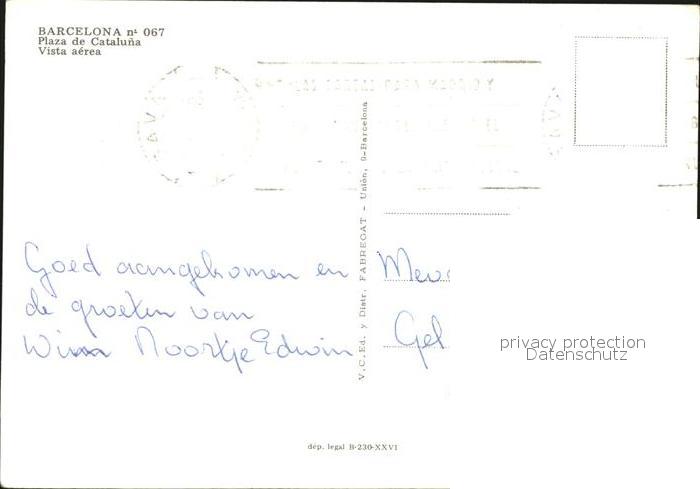 BARCELONA nº 067
Plaza de Cataluña
Vista aérea
V.C. Ed. y Distr. FABREGAT - Unión, 9-Barcelona
Goed aangekomen en
de groeten van
Noortje Edwin
Mev
Gel
privacy protection
Datenschutz
dép. legal B-230-XXVI